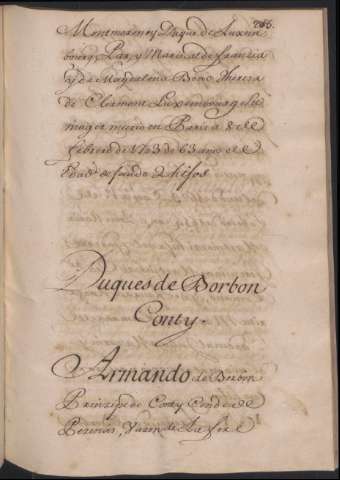 266.
Montmorency Duque de Luxem
bourg, Par, y Mariscal de francia
y de Magdalena Bona Theresa
de Clermont Luxembourg su
muger murio en Paris a 8 de
febrero de 1723 de 63 años de
Edad dexando 2 hijos
Duques de Borbon
Conty.
Armando de Borbon
Principe de Conty Conde de
Pezenas, Varon de La fere